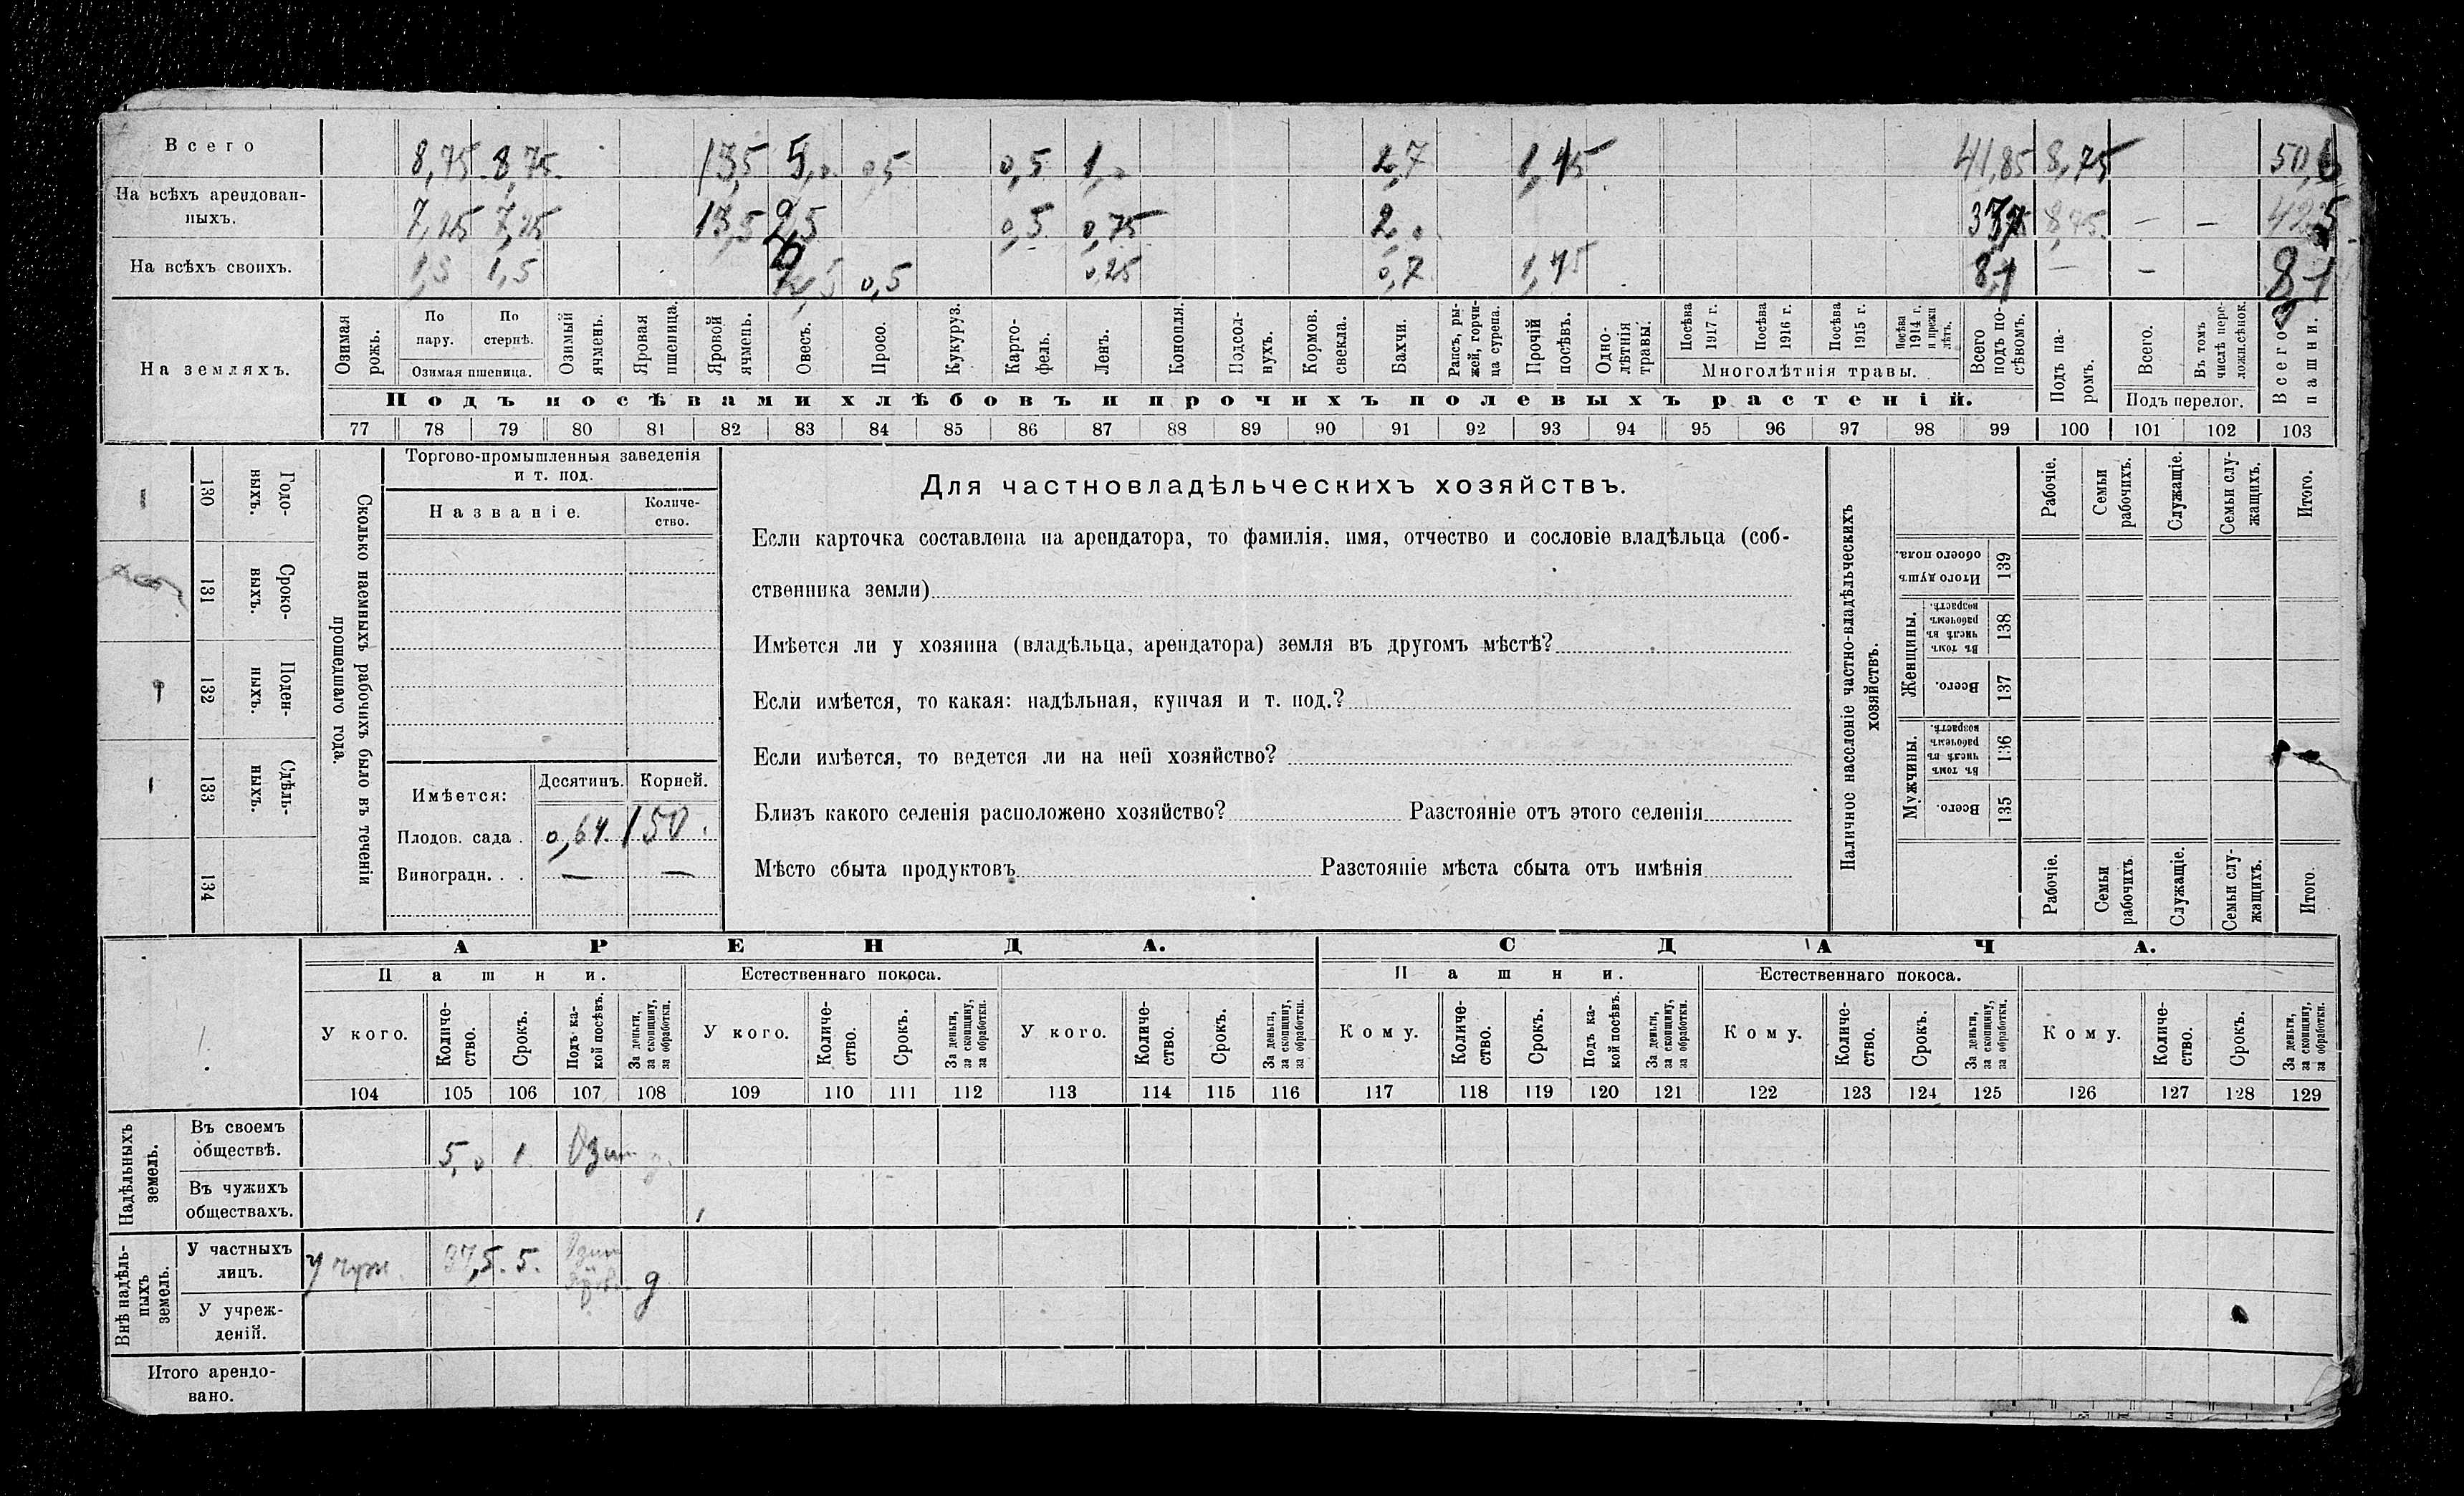 Всего 8,75 8,75 13,5 5,0 0,5 0,5 1,0 2,7 1,45 41,85 8,75 50,6
На всѣхъ арендован-
ныхъ. 7,25 7,25 13,5 2,5 0,5 0,75 2,0 8,75 — — 42,5
На всѣхъ своихъ. 1,5 1,5 0,5 0,25 0,7 1,45 8,1 — — 8,1
На земляхъ.
Озимая рожь.
По пару.
По стернѣ.
Озимая пшеница.
Озимый ячмень.
Яровая пшеница.
Яровой ячмень.
Овесъ.
Просо.
Кукуруз.
Карто-
фель.
Ленъ.
Конопля.
Подсол-
нухъ.
Кормов. свекла.
Бахчи.
Рапсъ, ры-
жей, горчи-
ца сурепа.
Прочій посѣвъ.
Одно-
лѣтнія травы.
Посѣва 1917 г.
Посѣва 1916 г.
Посѣва 1915 г.
Посѣва 1914 г. и прежн. лѣтъ.
Многолѣтнія травы.
Всего подъ по-
сѣвомъ.
Подъ па-
ромъ.
Всего.
Въ томъ числѣ пере-
ложн.сѣнок.
Подъ перелог.
Всего пашни.
Подъ посѣвами хлѣбовъ и прочихъ полевыхъ растеній.
77 78 79 80 81 82 83 84 85 86 87 88 89 90 91 92 93 94 95 96 97 98 99 100 101 102 103
Сколько наемныхъ рабочихъ было въ теченіи
прошедшаго года.
Годо-
выхъ. 130
Сроко-
выхъ. 131
Поден-
ныхъ. 132
Сдѣль-
ныхъ. 133
134
Торгово-промышленныя заведенія
и т. под.
Названіе.
Количе-
ство.
Имѣется: Десятинъ. Корней.
Плодов. сада . 0,64 150.
Виноградн. . . — —
Для частновладѣльческихъ хозяйствъ.
Если карточка составлена на арендатора, то фамилія, имя, отчество и сословіе владѣльца (соб-
ственника земли)
Имѣется ли у хозяина (владѣльца, арендатора) земля въ другомъ мѣстѣ?
Если имѣется, то какая: надѣльная, купчая и т. под.?
Если имѣется, то ведется ли на ней хозяйство?
Близъ какого селенія расположено хозяйство? Разстояніе отъ этого селенія
Мѣсто сбыта продуктовъ Разстояніе мѣста сбыта отъ имѣнія
Наличное населеніе частно-владѣльческихъ
хозяйствъ.
Рабочіе.
Семьи рабочихъ.
Служащіе.
Семьи слу-
жащихъ.
Итого.
Итого душъ обоего пола. 139
Женщины.
Въ томъ числѣ въ рабочемъ возрастѣ. 138
Всего. 137
Мужчины.
Въ томъ числѣ въ рабочемъ возрастѣ. 136
Всего. 135
Рабочіе.
Семьи рабочихъ.
Служащіе.
Семьи слу-
жащихъ.
Итого.
АРЕНДА. СДАЧА.
Пашни. Естественнаго покоса. Пашни. Естественнаго покоса.
У кого.
Количе-
ство.
Срокъ.
Подъ ка-
кой посѣвъ.
За деньги, за скопщину, за обработки.
У кого.
Количе-
ство.
Срокъ.
За деньги, за скопщину, за обработки.
У кого.
Количе-
ство.
Срокъ.
За деньги, за скопщину, за обработки.
Кому.
Количе-
ство.
Срокъ.
Подъ ка-
кой посѣвъ.
За деньги, за скопщину, за обработки.
Кому.
Количе-
ство.
Срокъ.
За деньги, за скопщину, за обработки.
Кому.
Количе-
ство.
Срокъ.
За деньги, за скопщину, за обработки.
104 105 106 107 108 109 110 111 112 113 114 115 116 117 118 119 120 121 122 123 124 125 126 127 128 129
Надѣльныхъ земель.
Въ своемъ
обществѣ. 5,0 1. Озим
Въ чужихъ
обществахъ.
Внѣ надѣль-
ныхъ земель.
У частныхъ
лицъ. 37,5. 5. Озим д
У учреж-
деній.
Итого арендо-
вано.